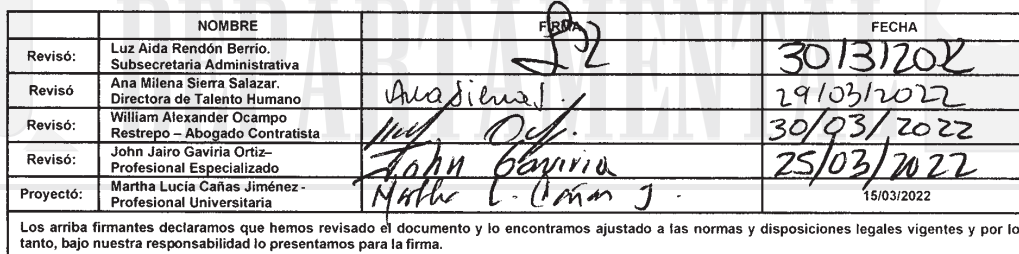 DEPARTAMENTAL
NOMBRE FIRMA FECHA
Revisó: Luz Aida Rendón Berrio. Subsecretaria Administrativa 30/3/202
Revisó Ana Milena Sierra Salazar. Directora de Talento Humano Ana Sierra S. 29/03/2022
Revisó: William Alexander Ocampo Restrepo – Abogado Contratista 30/03/2022
Revisó: John Jairo Gaviria Ortiz– Profesional Especializado John Gaviria 25/03/2022
Proyectó: Martha Lucía Cañas Jiménez - Profesional Universitaria Martha L. Cañas J. 15/03/2022
Los arriba firmantes declaramos que hemos revisado el documento y lo encontramos ajustado a las normas y disposiciones legales vigentes y por lo
tanto, bajo nuestra responsabilidad lo presentamos para la firma.